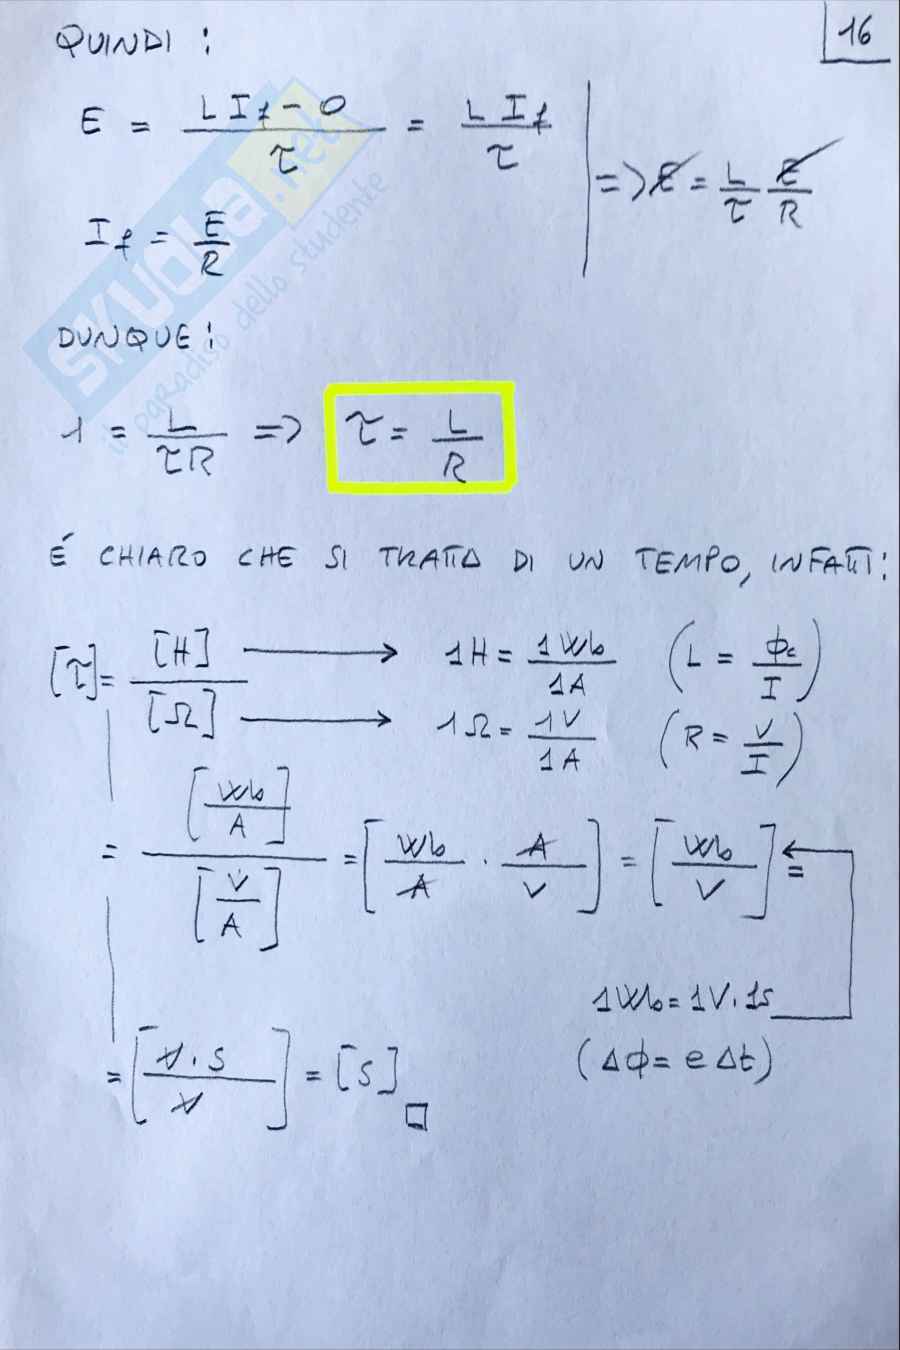 16
QUINDI :
E = (L I_f - 0)/τ = (L I_f)/τ => E = L/τ E/R
I_f = E/R
DUNQUE :
1 = L/(τR) => τ = L/R
É CHIARO CHE SI TRATTA DI UN TEMPO, INFATTI :
[τ] = [H]/[Ω]
1H = 1Wb/1A (L = ϕc/I)
1Ω = 1V/1A (R = V/I)
= [Wb/A]/[V/A] = [Wb/A · A/V] = [Wb/V] =
1Wb = 1V · 1s
(Δϕ = e Δt)
= [V · s/V] = [s]
SKUOLA.net
il paradiso dello studente